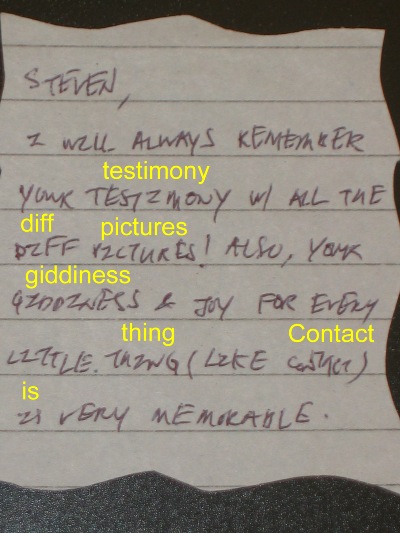 STEVEN,
I WILL ALWAYS REMEMBER
testimony
YOUR TESTIMONY W/ ALL THE
diff pictures
DIFF PICTURES! ALSO, YOUR
giddiness
GIDDINESS & JOY FOR EVERY
thing Contact
LITTLE THING (LIKE CONTACT)
is
IS VERY MEMORABLE.